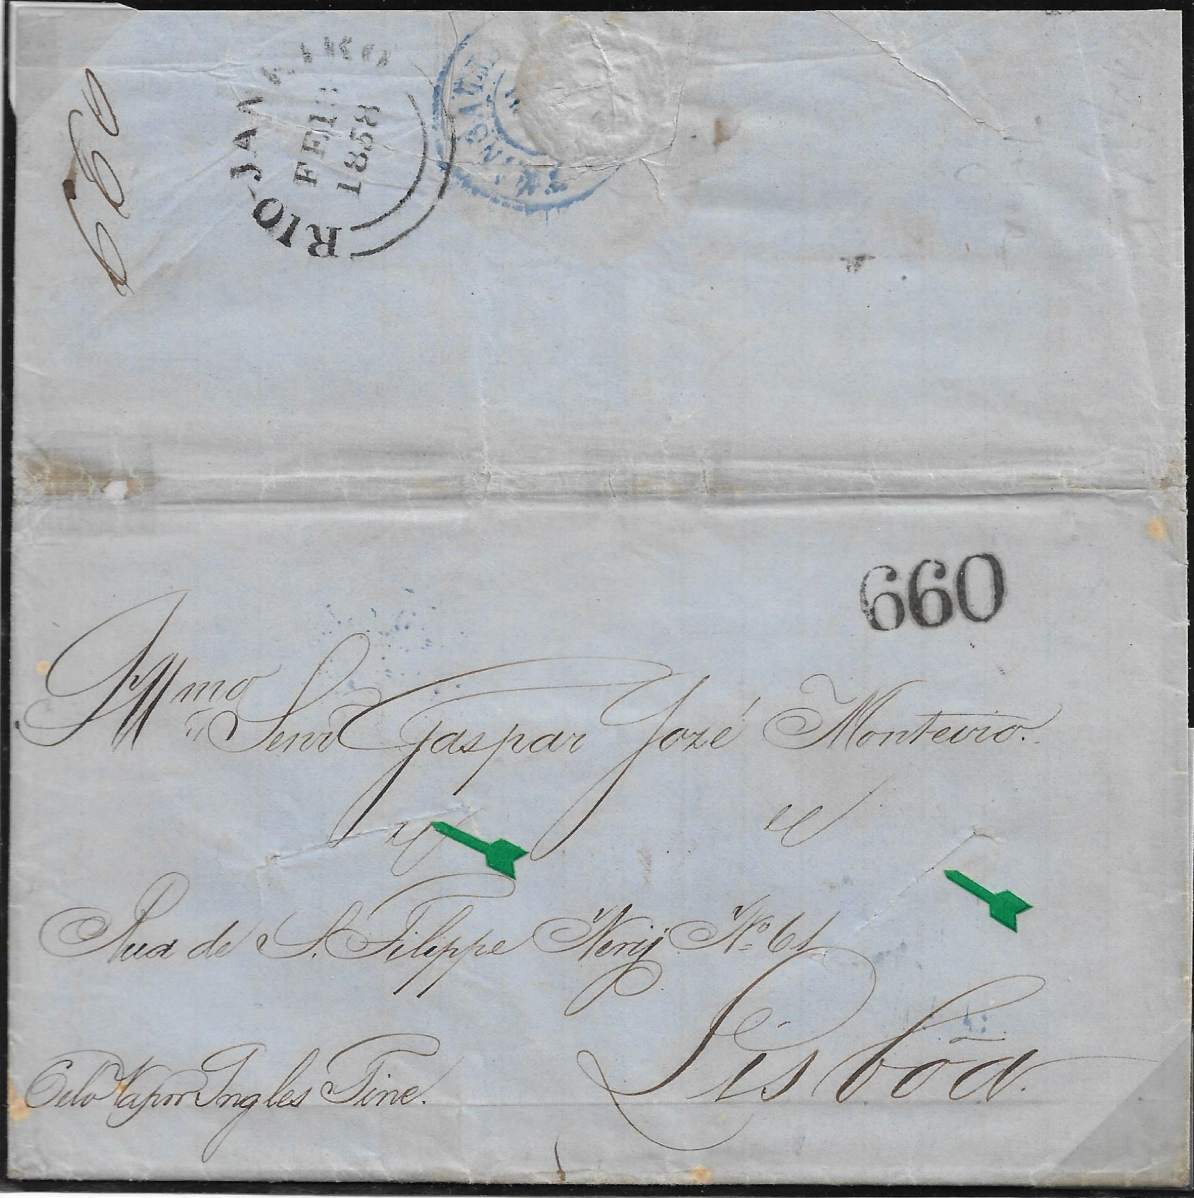 660
RIO JANEIRO
FE 13
1858
660
Illmo Senr Gaspar Jozé Monteiro.
Rua de S. Filippe Nerij No 61
Lisbôa.
Pelo Vapor Ingles Tine.